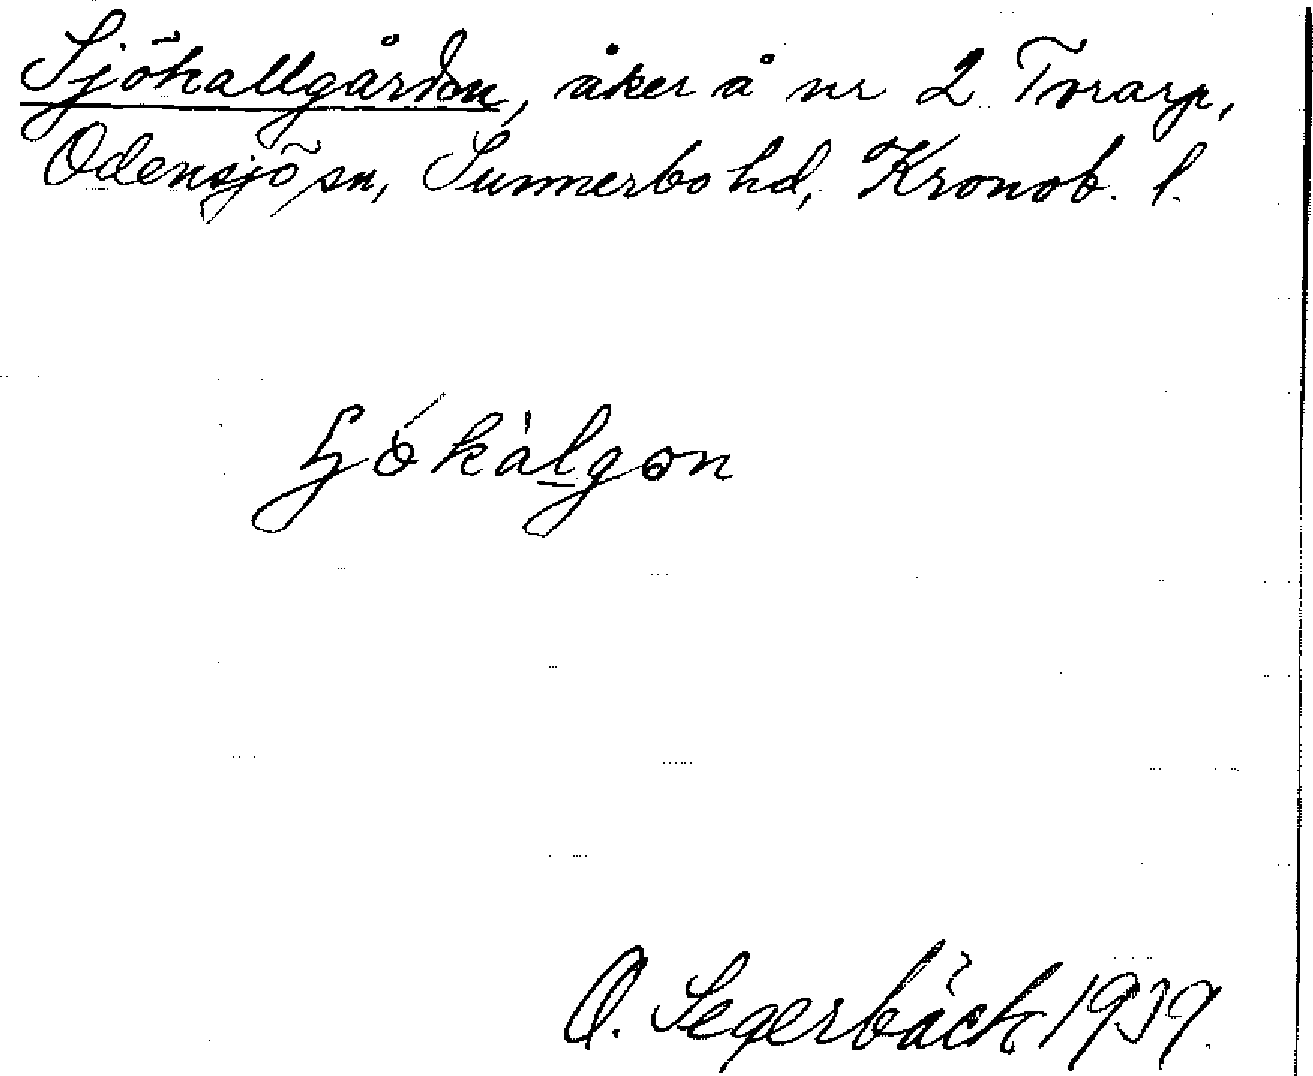 Sjökallgården, åker å nr 2 Tvrarp,
Odensjö sn, Sunnerbo hd, Kronob. l.
O. Segerbäck 1939.